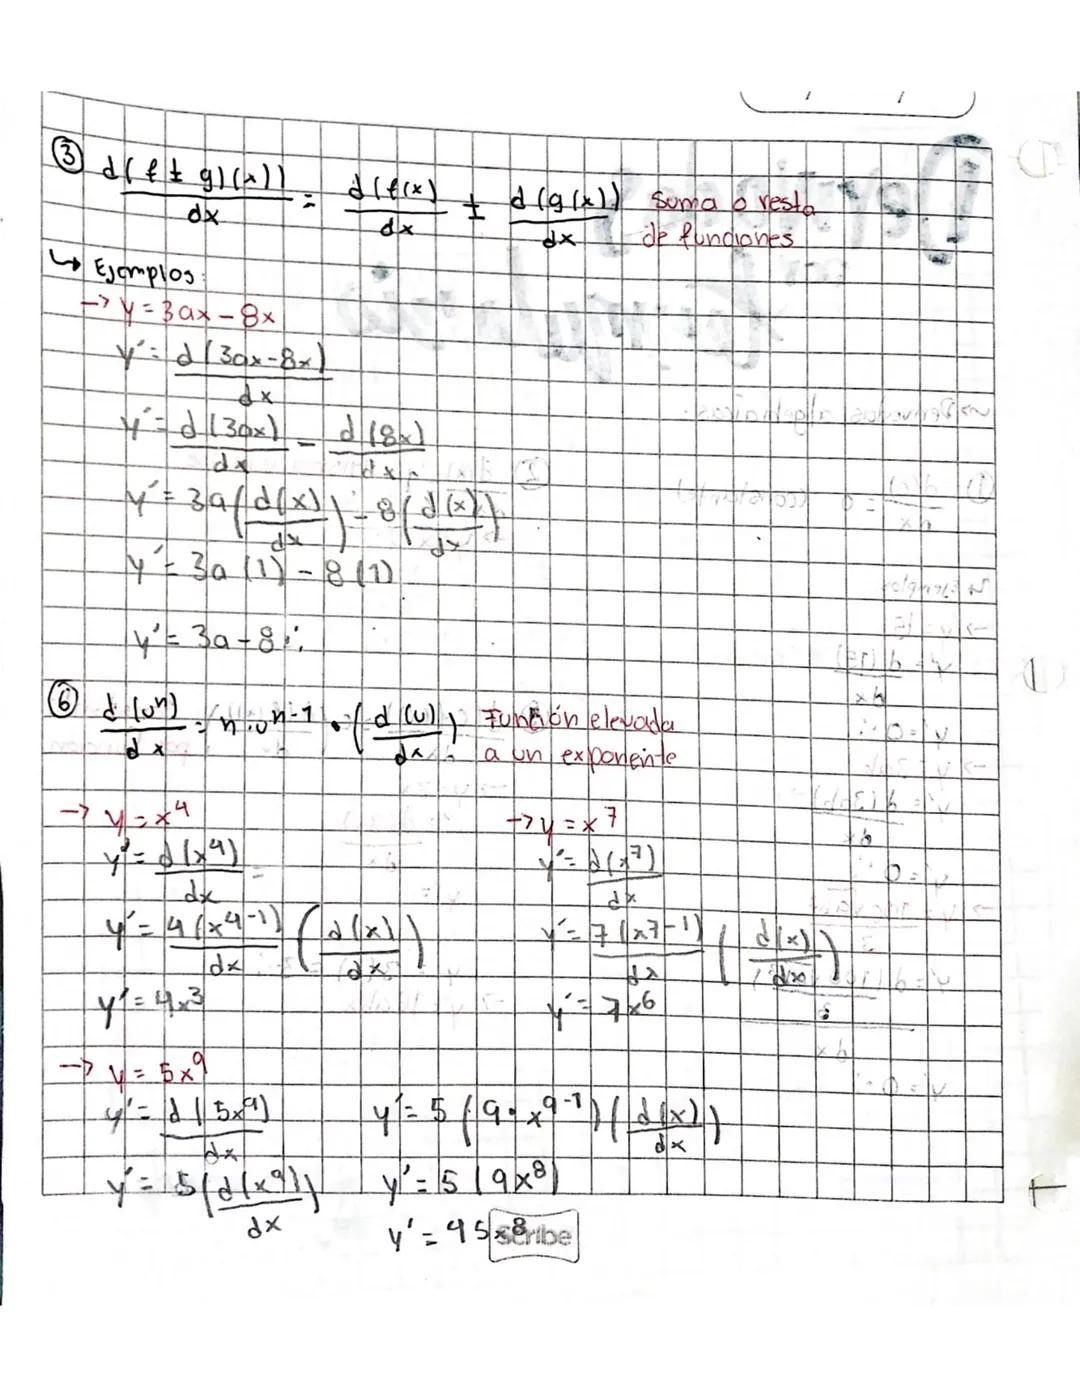 ③ d(f ± g)(x)) / dx = d(f(x) / dx ± d(g(x)) / dx suma o resta
de funciones
↳ Ejemplos:
→ y = 3ax - 8x
y' = d(3ax-8x) / dx
y' = d(3ax) / dx - d(8x) / dx
y' = 3a (d(x) / dx) - 8 (d(x) / dx)
y' = 3a (1) - 8 (1)
y' = 3a - 8 ∴
⑥ d(uⁿ) / dx = n·uⁿ⁻¹ · (d(u) / dx) Función elevada
a un exponente
→ y = x⁴
y' = d(x⁴) / dx =
y' = 4(x⁴⁻¹) / dx (d(x) / dx)
y' = 4x³
→ y = x⁷
y' = d(x⁷) / dx
y' = 7(x⁷⁻¹) / dx (d(x) / dx)
y' = 7x⁶
→ y = 5x⁹
y' = d(5x⁹) / dx
y' = 5 (d(x⁹) / dx)
y' = 5 (9·x⁹⁻¹) (d(x) / dx)
y' = 5 (9x⁸)
y' = 45x⁸
scribe